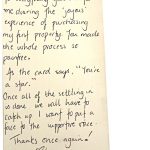 me during the "joyous"
experience of purchasing
my first property. You made
the whole process so
painfree.
As the card says, "You're
a star."
Once all of the settling in
is done we will have to
catch up. I want to put a
face to the supportive voice.
Thanks once again!